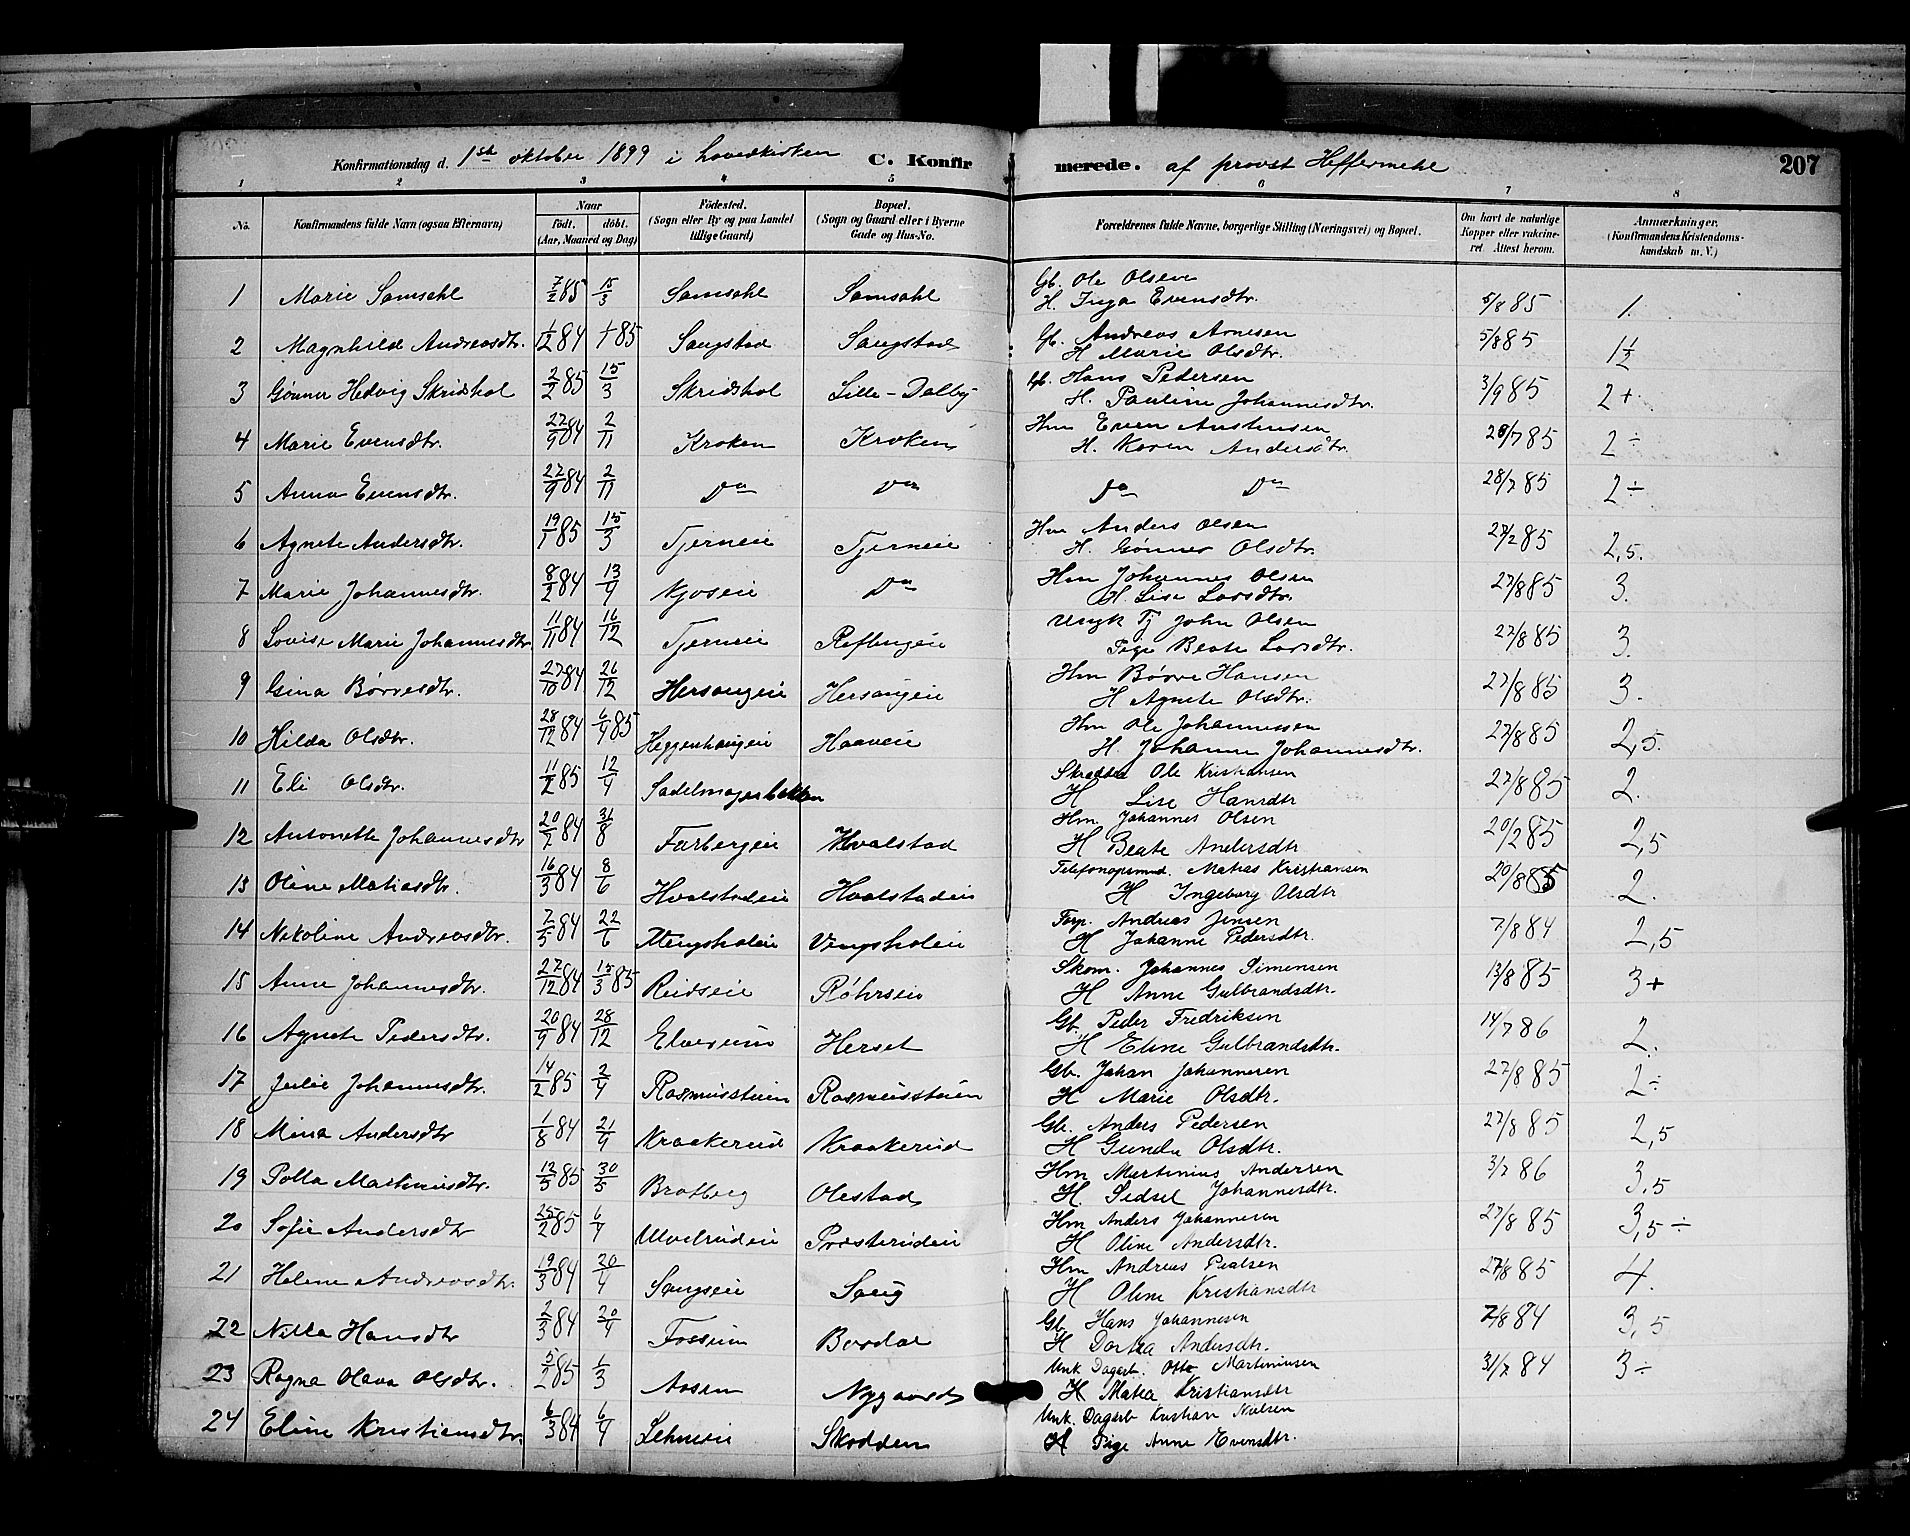 Konfirmationsdag d. 1ste oktober 1899 i hovedkirken C. Konfirmerede. af provst Heffermehl 207
1 2 3 4 5 6 7 8
No. Konfirmandens fulde Navn (ogsaa Efternavn) Naar født. døbt. (Aar, Maaned og Dag) Fødested. (Sogn eller By og paa Landet tillige Gaard) Bopæl. (Sogn og Gaard eller i Byerne Gade og Hus-No. Forældrenes fulde Navne, borgerlige Stilling (Næringsvei) og Bopæl. Om havt de naturlige Kopper eller vakcineret. Attest herom. Anmærkninger. (Konfirmandens Kristendomskundskab m. V.)
1 Marie Samsahl 7/2 85 15/3 Samsahl Samsahl Gb. Ole Olsen
H. Inga Evensdtr. 5/8 85 1.
2 Magnhild Andreasdtr. 1/12 84 85 Saugstad Saugstad Gb. Andreas Arnesen
H Marie Olsdtr. 5/8 85 1½
3 Gønner Hedvig Skridshol 2/2 85 15/3 Skridshol Lille-Dalby Gb. Hans Pedersen
H. Pauline Johannesdtr. 3/9 85 2+
4 Marie Evensdtr. 27/9 84 2/11 Kroken Kroken Hm Even Austensen
H. Karen Andersdtr. 28/7 85 2÷
5 Anna Evensdtr. 27/9 84 2/11 Do Do Do Do 28/7 85 2÷
6 Agnete Andersdtr. 19/1 85 15/3 Tjerneie Tjerneie Hm Anders Olsen
H. Gønner Olsdtr. 27/2 85 2,5.
7 Marie Johannesdtr. 8/2 84 13/4 Kjoseie Do Hm Johannes Olsen
H. Lise Larsdtr. 27/8 85 3.
8 Lovise Marie Johannesdtr. 11/11 84 16/12 Tjerneie Reflingeie Ungk Tj John Olsen
Pige Beate Larsdtr. 27/8 85 3.
9 Gina Børresdtr. 27/10 84 26/12 Hersaugeie Hersaugeie Hm Børre Hansen
H Agnete Olsdtr. 27/8 85 3.
10 Hilda Olsdtr. 28/12 84 6/4 85 Heggenhaugeie Haaveie Hm Ole Johannessen
H. Johanne Johannesdtr. 27/8 85 2,5.
11 Eli Olsdtr. 11/2 85 12/4 Sadelmagerbakken Skrædder Ole Kristiansen
H Lise Hansdtr 27/8 85 2.
12 Antonette Johannesdtr 20/7 84 31/8 Farbergeie Hvalstad Hm. Johannes Olsen
H Beate Andersdtr 20/2 85 2,5
13 Oline Matiasdtr. 16/3 84 8/6 Hvalstadeie Hvalstadeie Matias Kristiansen
H Ingeborg Olsdtr 20/8 85 2.
14 Nikoline Andreasdtr. 7/5 84 22/6 Vengsholeie Vengsholeie Forp. Andreas Jensen
H Johanne Pedersdtr. 7/8 84 2,5
15 Anne Johannesdtr. 27/12 84 15/3 85 Rudseie Røhrseie Skom. Johannes Simensen
H Anne Gulbrandsdtr. 13/8 85 3+
16 Agnete Pedersdtr. 20/9 84 28/12 Elverum Herset Gb. Peder Fredriksen
H Eline Gulbrandsdtr. 14/7 86 2.
17 Julie Johannesdtr. 14/2 85 2/4 Rasmusstuen Rasmusstuen Gb. Johan Johannesen
H Marie Olsdtr. 27/8 85 2÷
18 Mina Andersdtr 1/8 84 21/9 Kraakerud Kraakerud Gb. Anders Pedersen
H Gunda Olsdtr. 27/8 85 2,5
19 Polla Martinusdtr. 12/3 85 30/5 Bratberg Olestad Hm Martinius Andersen
H. Sidsel Johannesdtr. 3/7 86 3.5
20 Sofie Andersdtr 25/2 85 6/4 Ulvelrudeie Præsterudeie Hm Anders Johannesen
H Oline Andersdtr. 27/8 85 3,5÷
21 Helene Andreasdtr. 19/3 84 20/4 Saugseie Saug Hm Andreas Pealsen
H Oline Kristiansdtr 27/8 85 4.
22 Nilla Hansdtr 2/3 84 20/4 Fossum Bordal Gb. Hans Johannesen
H Dortea Andersdtr. 7/8 84 3,5
23 Ragna Olava Olsdtr. 5/2 85 6/3 Aasen Nygaard Unk Dagarb. Otto Martiniusen
H Matea Kristiansdtr 31/7 84 3÷
24 Eline Kristiansdtr. 6/3 84 6/4 Lehneeie Skodden Unk. Dagarb Kristian Nielsen
H Pige Anne Evensdtr.